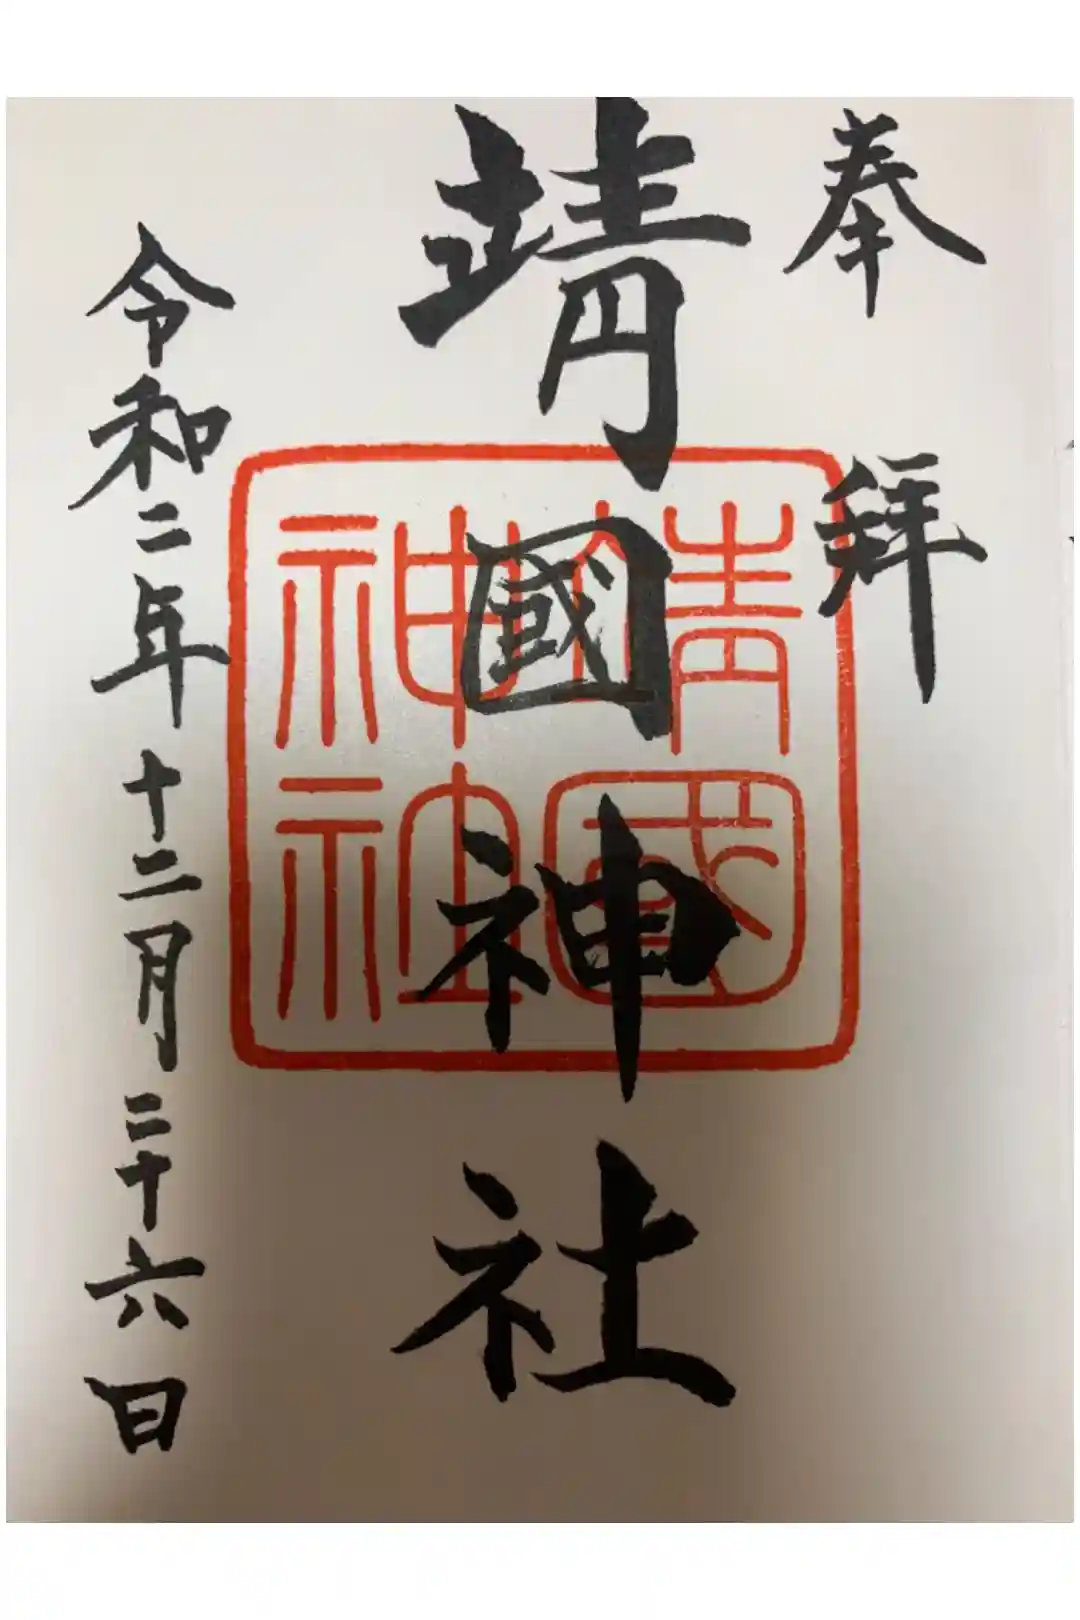 奉拝
靖國神社
靖國神社
令和二年十二月二十六日